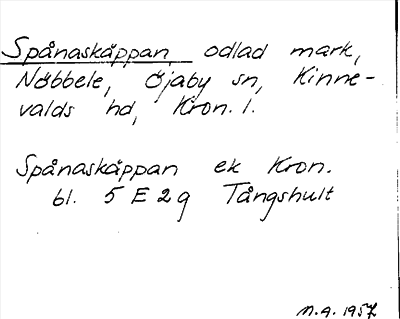 Spånaskäppan odlad mark,
Nöbbele, Öjaby sn, Kinne-
valds hd, Kron. l.
Spånaskäppan ek Kron.
bl. 5 E 2 g Tångshult
M.A. 1957